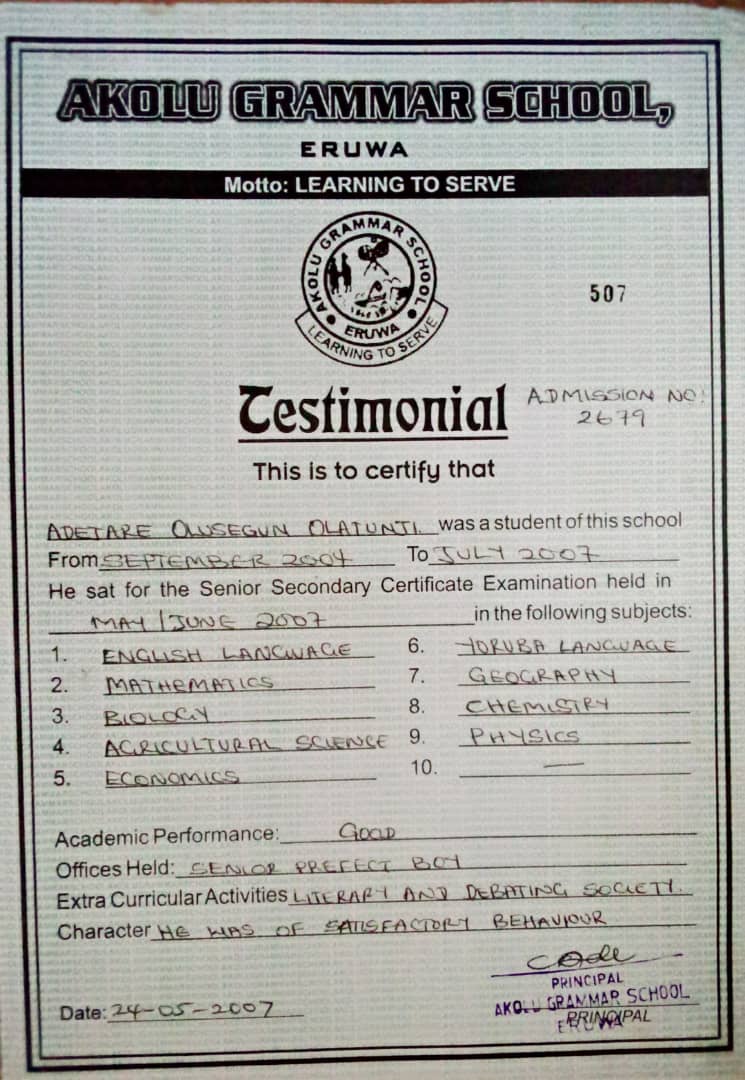 AKOLU GRAMMAR SCHOOL,
ERUWA
Motto: LEARNING TO SERVE
AKOLU GRAMMAR SCHOOL
ERUWA
LEARNING TO SERVE
507
Testimonial
ADMISSION NO:
2679
This is to certify that
ADETARE OLUSEGUN OLATUNJI was a student of this school
From SEPTEMBER 2004 To JULY 2007
He sat for the Senior Secondary Certificate Examination held in
MAY/JUNE 2007 in the following subjects:
1. ENGLISH LANGUAGE 6. YORUBA LANGUAGE
2. MATHEMATICS 7. GEOGRAPHY
3. BIOLOGY 8. CHEMISTRY
4. AGRICULTURAL SCIENCE 9. PHYSICS
5. ECONOMICS 10. —
Academic Performance: GOOD
Offices Held: SENIOR PREFECT BOY
Extra Curricular Activities LITERARY AND DEBATING SOCIETY.
Character HE WAS OF SATISFACTORY BEHAVIOUR
PRINCIPAL
AKOLU GRAMMAR SCHOOL
ERUWA
PRINCIPAL
Date: 24-05-2007